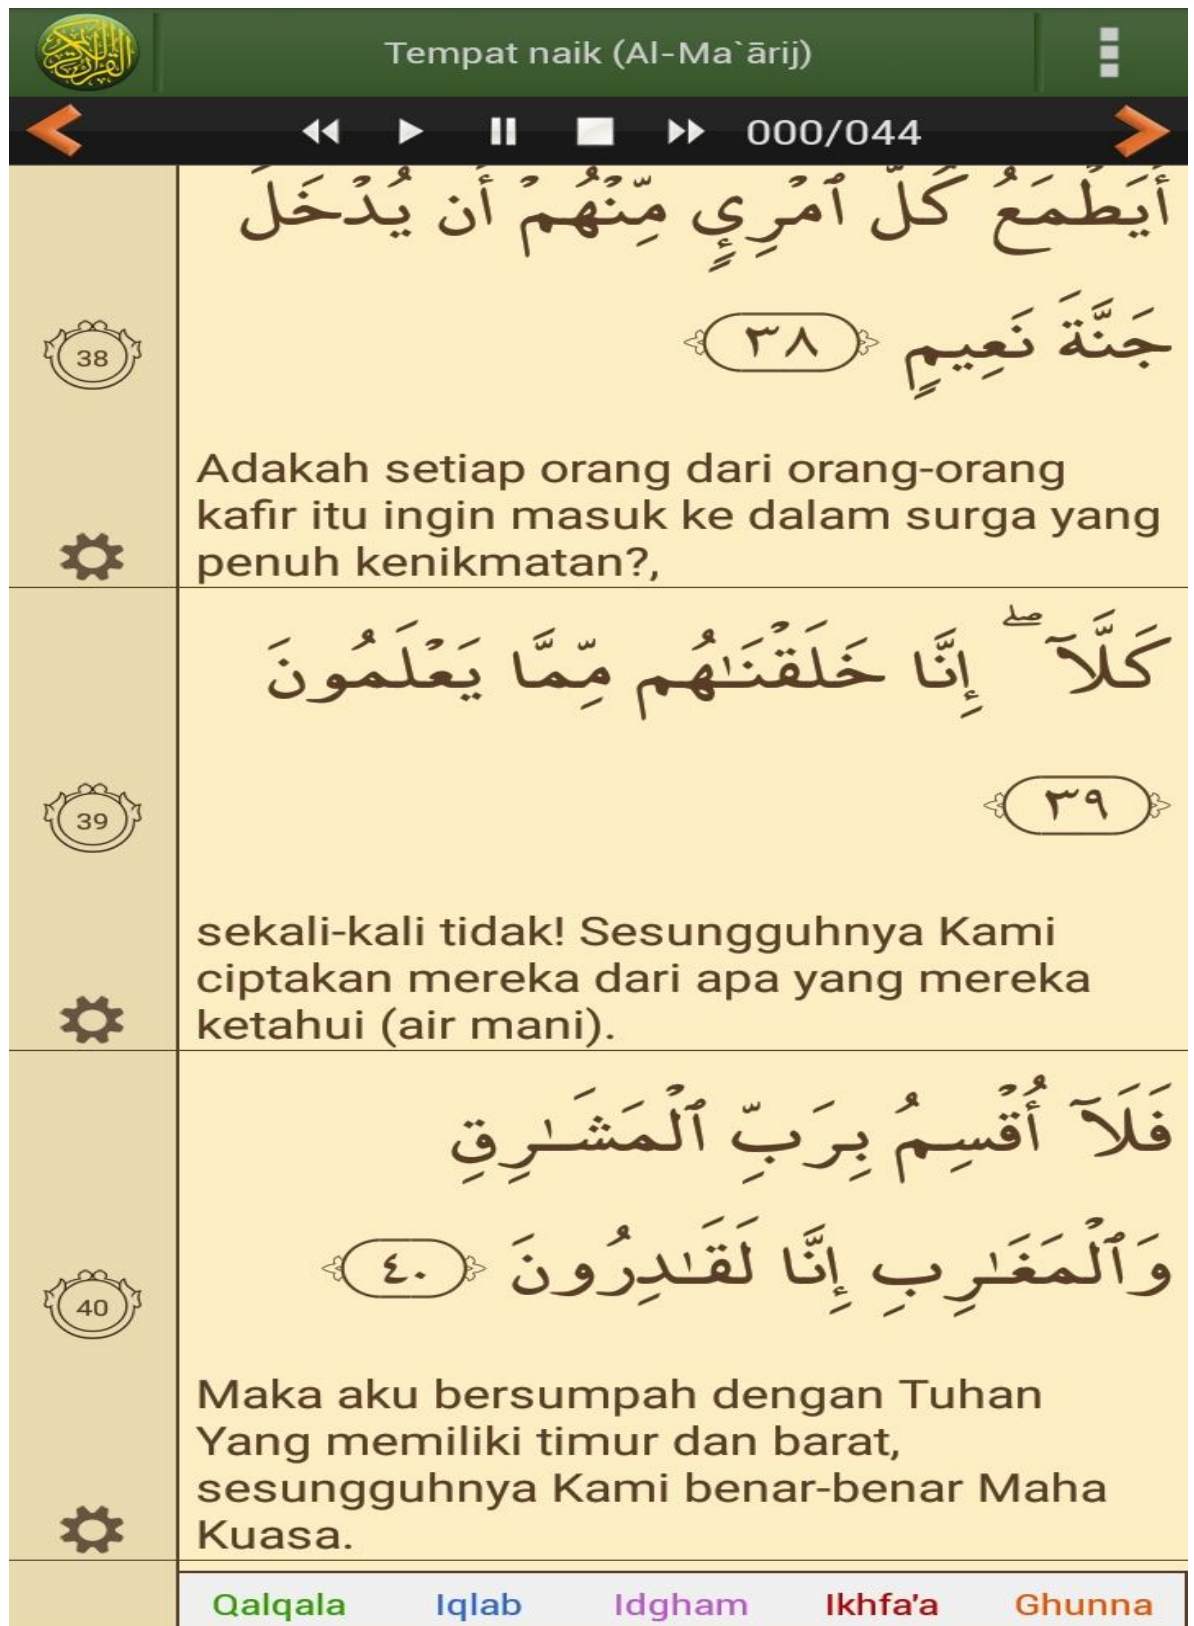 Tempat naik (Al-Ma`ārij)
000/044
أَيَطْمَعُ كُلُّ ٱمْرِئٍ مِّنْهُمْ أَن يُدْخَلَ
جَنَّةَ نَعِيمٍ ٣٨
38
Adakah setiap orang dari orang-orang
kafir itu ingin masuk ke dalam surga yang
penuh kenikmatan?,
كَلَّآ ۖ إِنَّا خَلَقْنَـٰهُم مِّمَّا يَعْلَمُونَ
٣٩
39
sekali-kali tidak! Sesungguhnya Kami
ciptakan mereka dari apa yang mereka
ketahui (air mani).
فَلَآ أُقْسِمُ بِرَبِّ ٱلْمَشَـٰرِقِ
وَٱلْمَغَـٰرِبِ إِنَّا لَقَـٰدِرُونَ ٤٠
40
Maka aku bersumpah dengan Tuhan
Yang memiliki timur dan barat,
sesungguhnya Kami benar-benar Maha
Kuasa.
Qalqala Iqlab Idgham Ikhfa'a Ghunna